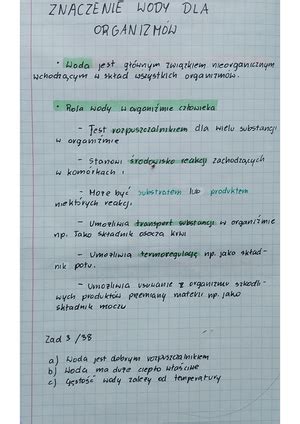 ZNACZENIE WODY DLA
ORGANIZMÓW
• Woda jest głównym związkiem nieorganicznym
wchodzącym w skład wszystkich organizmów.
• Rola wody w organizmie człowieka
- Jest rozpuszczalnikiem dla wielu substancji
w organizmie
- Stanowi środowisko reakcji zachodzących
w komórkach i
- Może być substratem lub produktem
niektórych reakcji.
- Umożliwia transport substancji w organizmie
np. Jako składnik osocza krwi
- Umożliwia termoregulację np. jako skład-
nik potu.
- Umożliwia usuwanie z organizmu szkodli-
wych produktów przemiany materii np. jako
składnik moczu
Zad 3 / 38
a) Woda jest dobrym rozpuszczalnikiem
b) Woda ma duże ciepło właściwe
c) Gęstość wody zależy od temperatury